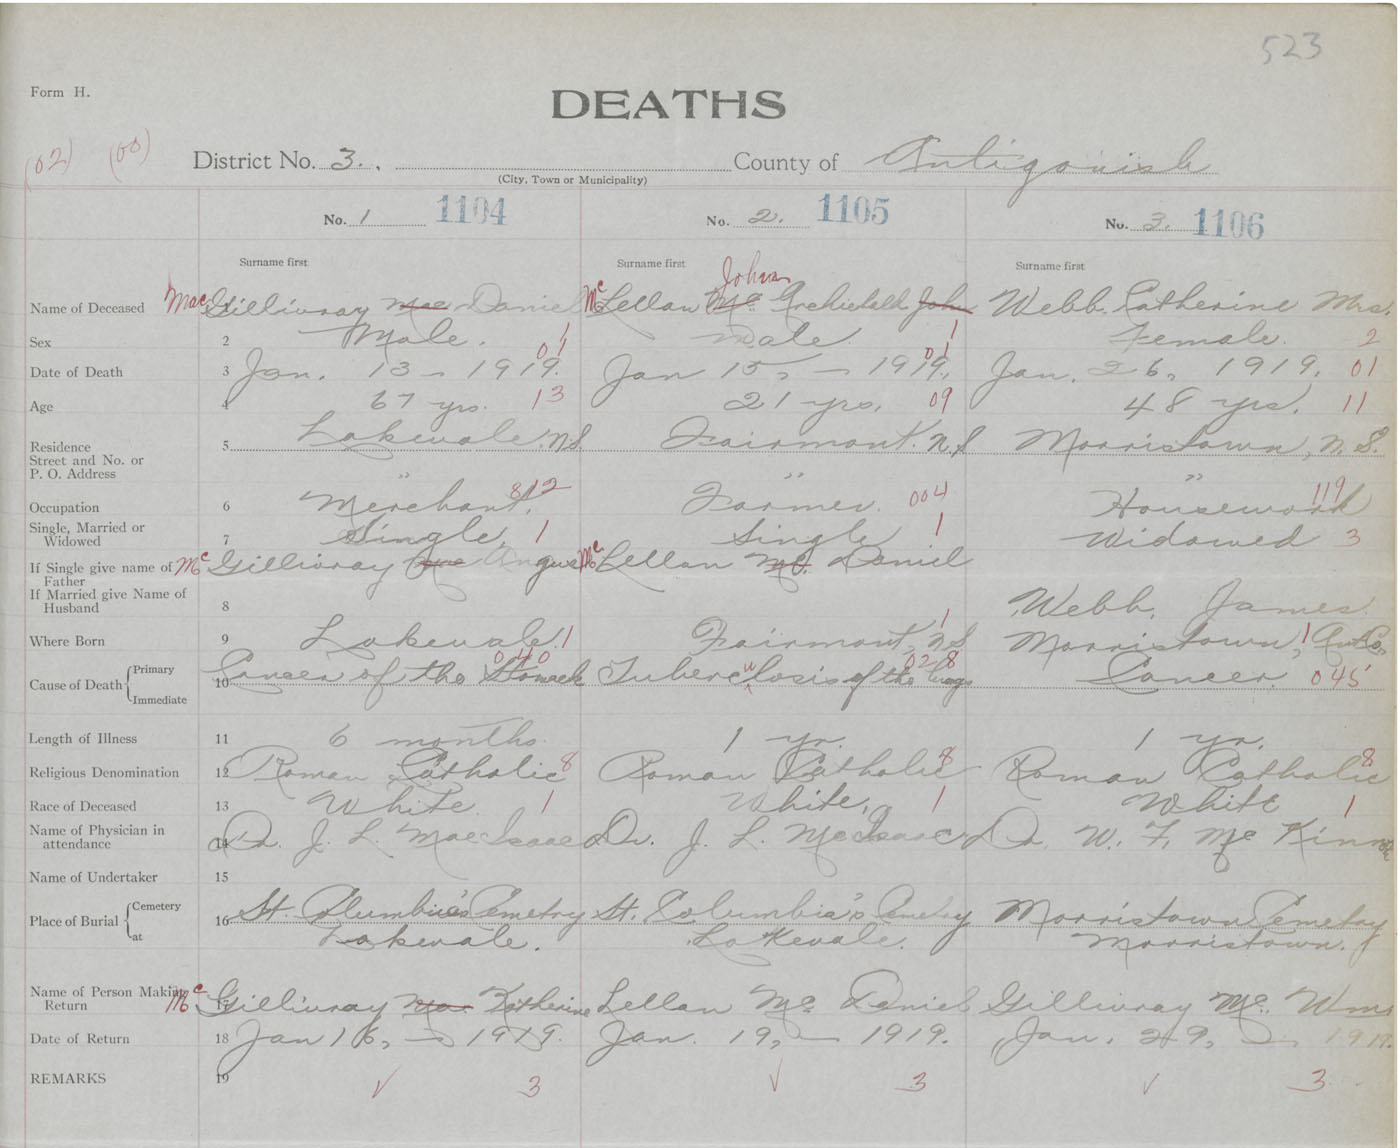 523
Form H.
DEATHS
(02) (00)
District No. 3. , County of Antigonish
(City, Town or Municipality)
No. 1 1104 No. 2. 1105 No. 3. 1106
Surname first Surname first Surname first
Johns
Name of Deceased 1 Mac Gillivray Mac Daniel Mc Lellan Mc Archibald John Webb. Catherine Mrs.
Sex 2 Male. 1 Male 1 Female. 2
Date of Death 3 Jan. 13 — 1919. 01 Jan 15, — 1919. 01 Jan. 26, 1919. 01
Age 4 67 yrs. 13 21 yrs. 09 48 yrs. 11
Residence 5 Lakevale. N.S. Fairmont. N.S Morristown, N.S.
Street and No. or
P. O. Address " " "
Occupation 6 Merchant. 812 Farmer. 004 Housework 119
Single, Married or
Widowed 7 Single, 1 Single 1 Widowed 3
If Single give name of
Father Mc Gillivray Mac Angus Mc Lellan Mc. Daniel
If Married give Name of
Husband 8 Webb, James
Where Born 9 Lakevale. 1 Fairmont, N.S 1 Morristown, 1 Ant Co.
Cause of Death { Primary
10 Cancer of the Stomach 040 Tuberculosis of the lungs 028 Cancer. 045
Immediate
Length of Illness 11 6 months. 1 yr. 1 yr.
Religious Denomination 12 Roman Catholic 8 Roman Catholic 8 Roman Catholic 8
Race of Deceased 13 White. 1 White, 1 White 1
Name of Physician in
attendance 14 Dr. J. L. MacIsaac Dr. J. L. McIsaac Dr. W. F. Mc Kinnon
Name of Undertaker 15
Place of Burial { Cemetery
16 St. Columbia's Cemetry St. Columbia's Cemetry Morristown Cemetry
at Lakevale. Lakevale. Morristown.
Name of Person Making
Return 17 Mc Gillivray Mac Katherine Lellan Mc. Daniel Gillivray Mc. Wm
Date of Return 18 Jan 16, — 1919. Jan. 19, — 1919. Jan. 29, — 1919.
REMARKS 19 ✓ 3 ✓ 3 ✓ 3